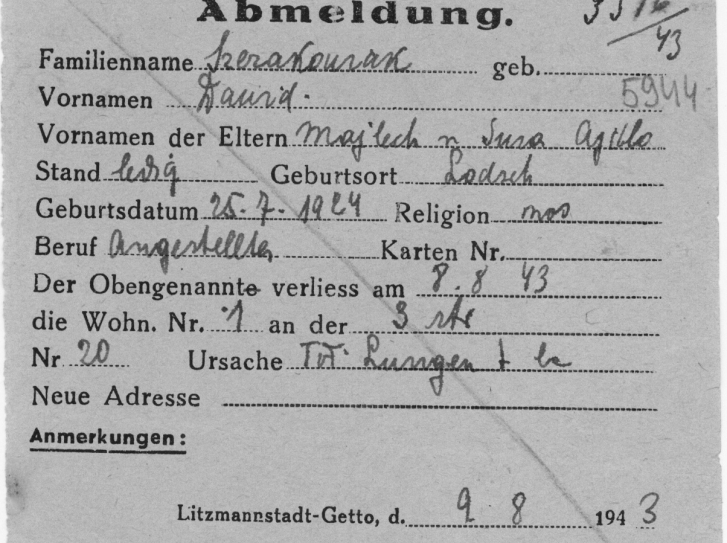 Abmeldung.
43
Familienname Szerakowiak geb.
5944
Vornamen Dawid.
Vornamen der Eltern Majlech n Sura
Stand ledig Geburtsort Lodsch
Geburtsdatum 25.7.1924 Religion mos
Beruf Angestellter Karten Nr.
Der Obengenannte verliess am 8.8 43
die Wohn. Nr. 1 an der
Nr 20 Ursache Tot. Lungen
Neue Adresse
Anmerkungen:
Litzmannstadt-Getto, d. 9 8 1943